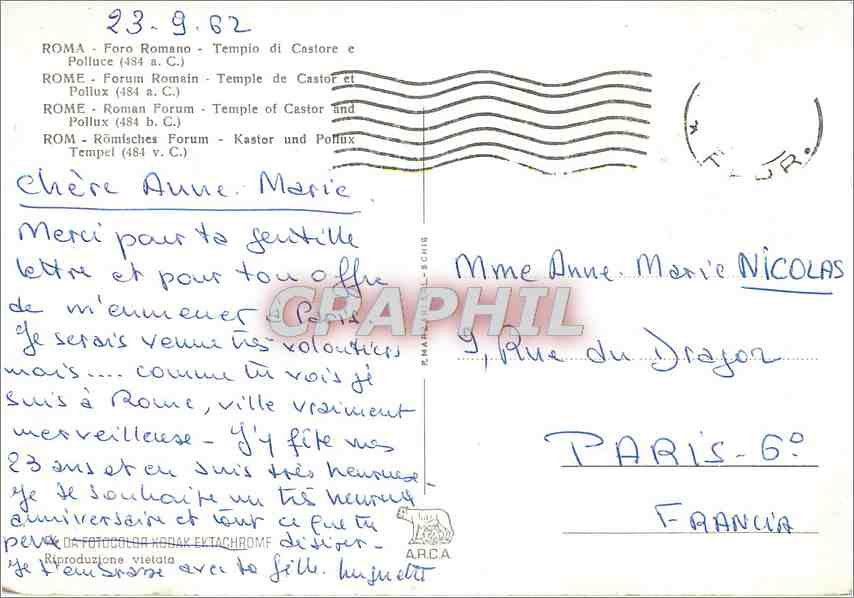 23-9-62
ROMA - Foro Romano - Tempio di Castore e
Polluce (484 a. C.)
ROME - Forum Romain - Temple de Castor et
Pollux (484 a. C.)
ROME - Roman Forum - Temple of Castor and
Pollux (484 b. C.)
ROM - Römisches Forum - Kastor und Pollux
Tempel (484 v. C.)
Chère Anne-Marie
Merci pour ta gentille
lettre et pour ton offre
de m'emmener à Paris.
Je serais venue très volontiers
mais.... comme tu vois je
suis à Rome, ville vraiment
merveilleuse - J'y fête mes
23 ans et en suis très heureuse -
Je te souhaite un très heureux
anniversaire et tout ce que tu
peux désirer -
DA FOTOCOLOR KODAK EKTACHROME
Riproduzione vietata
Je t'embrasse avec ta fille. Huguette
A.R.C.A.
CRAPHIL
Mme Anne-Marie NICOLAS
9, Rue du Dragon
PARIS - 6°
FRANCIA